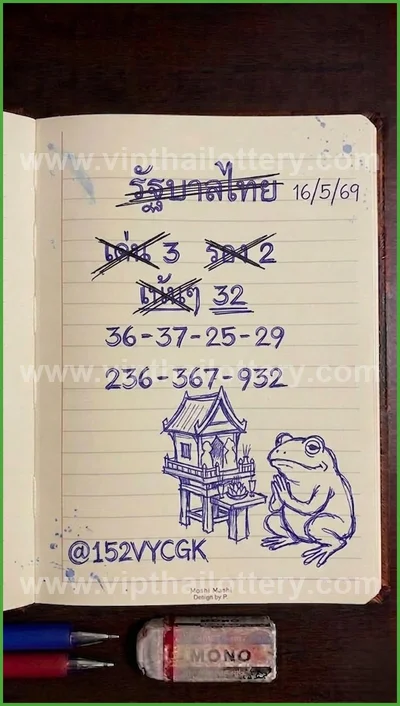 www.vipthailottery.com
รัฐบาลไทย 16/5/69
เด่น 3 รอง 2
เน้นๆ 32
36-37-25-29
www.vipthailottery.com
236-367-932
@152VYCGK
www.vipthailottery.com
Moshi Moshi
Design by P.
MONO